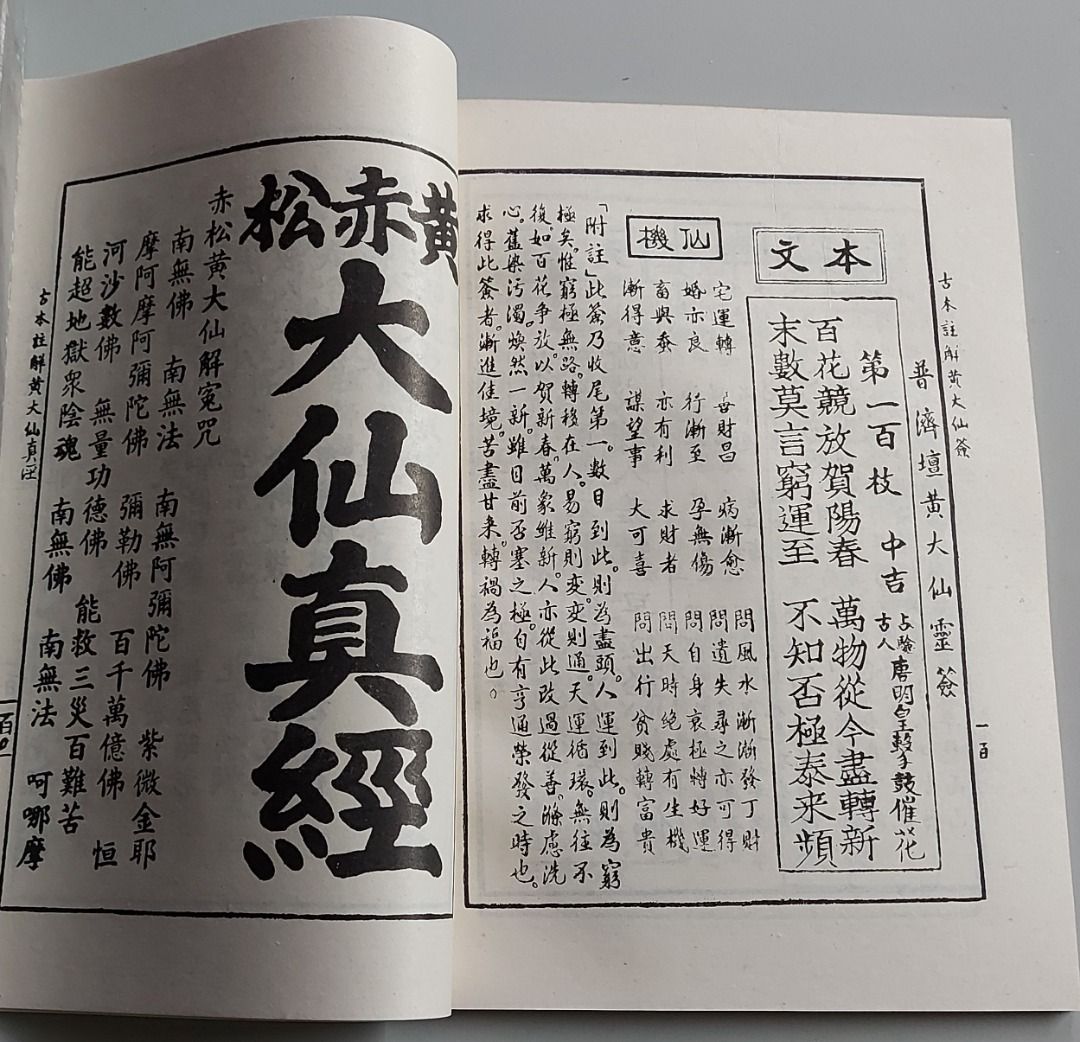 古本註解黃大仙簽
一百
普濟壇黃大仙靈簽
本文
第一百枝 中吉 古人占驗 唐明皇擊手鼓催花
百花競放賀陽春 萬物從今盡轉新
末數莫言窮運至 不知否極泰来頻
仙機
宅運轉 毋財昌 病漸愈 問風水 漸漸發丁財
婚亦良 行漸至 孕無傷 問遺失 尋之亦可得
畜與蚕 亦有利 求財者 問自身 衰極轉好運
漸得意 謀望事 大可喜 問天時 絕處有生機
問出行 貧賤轉富貴
「附註」此簽乃收尾第一。數目到此。則為盡頭。人運到此。則為窮
極矣。惟窮極無路。轉移在人。易窮則変。変則通。天運循環。無往不
復。如百花争放。以賀新春。萬象維新。人亦從此改過從善。滌慮洗
心。舊染污濁。煥然一新。雖目前否塞之極。自有亨通榮發之時也。
求得此簽者。漸進佳境。苦盡甘来。轉禍為福也。
黃赤松
大仙真經
赤松黃大仙解冤咒
南無佛 南無法 南無阿彌陀佛 紫微金耶
摩阿摩阿彌陀佛 彌勒佛 百千萬億佛 恒
河沙數佛 無量功德佛 能救三災百難苦
能超地獄眾陰魂 南無佛 南無法 呵哪摩
古本註解黃大仙真經